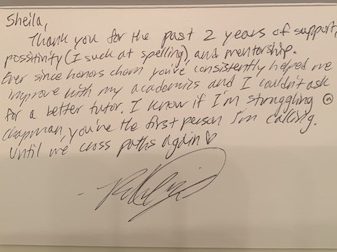 Sheila,
Thank you for the past 2 years of support,
possitivity (I suck at spelling), and mentorship.
Ever since honors chem you've consistently helped me
improve with my academics and I couldn't ask
for a better tutor. I know if I'm struggling @
chapman, you're the first person I'm calling.
Until we cross paths again ♡